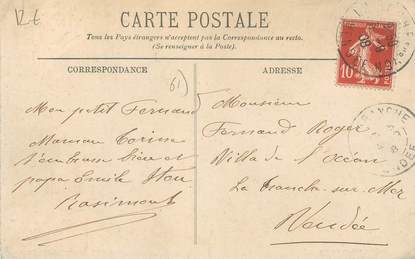 CARTE POSTALE
Tous les Pays étrangers n'acceptent pas la Correspondance au recto.
(Se renseigner à la Poste).
CORRESPONDANCE
ADRESSE
61)
10
Mon petit Fernand
Maman
t'embrasse bien et
papa Emile
Monsieur
Fernand Roger
Villa de l'Océan
La Tranche-sur-Mer
Vendée